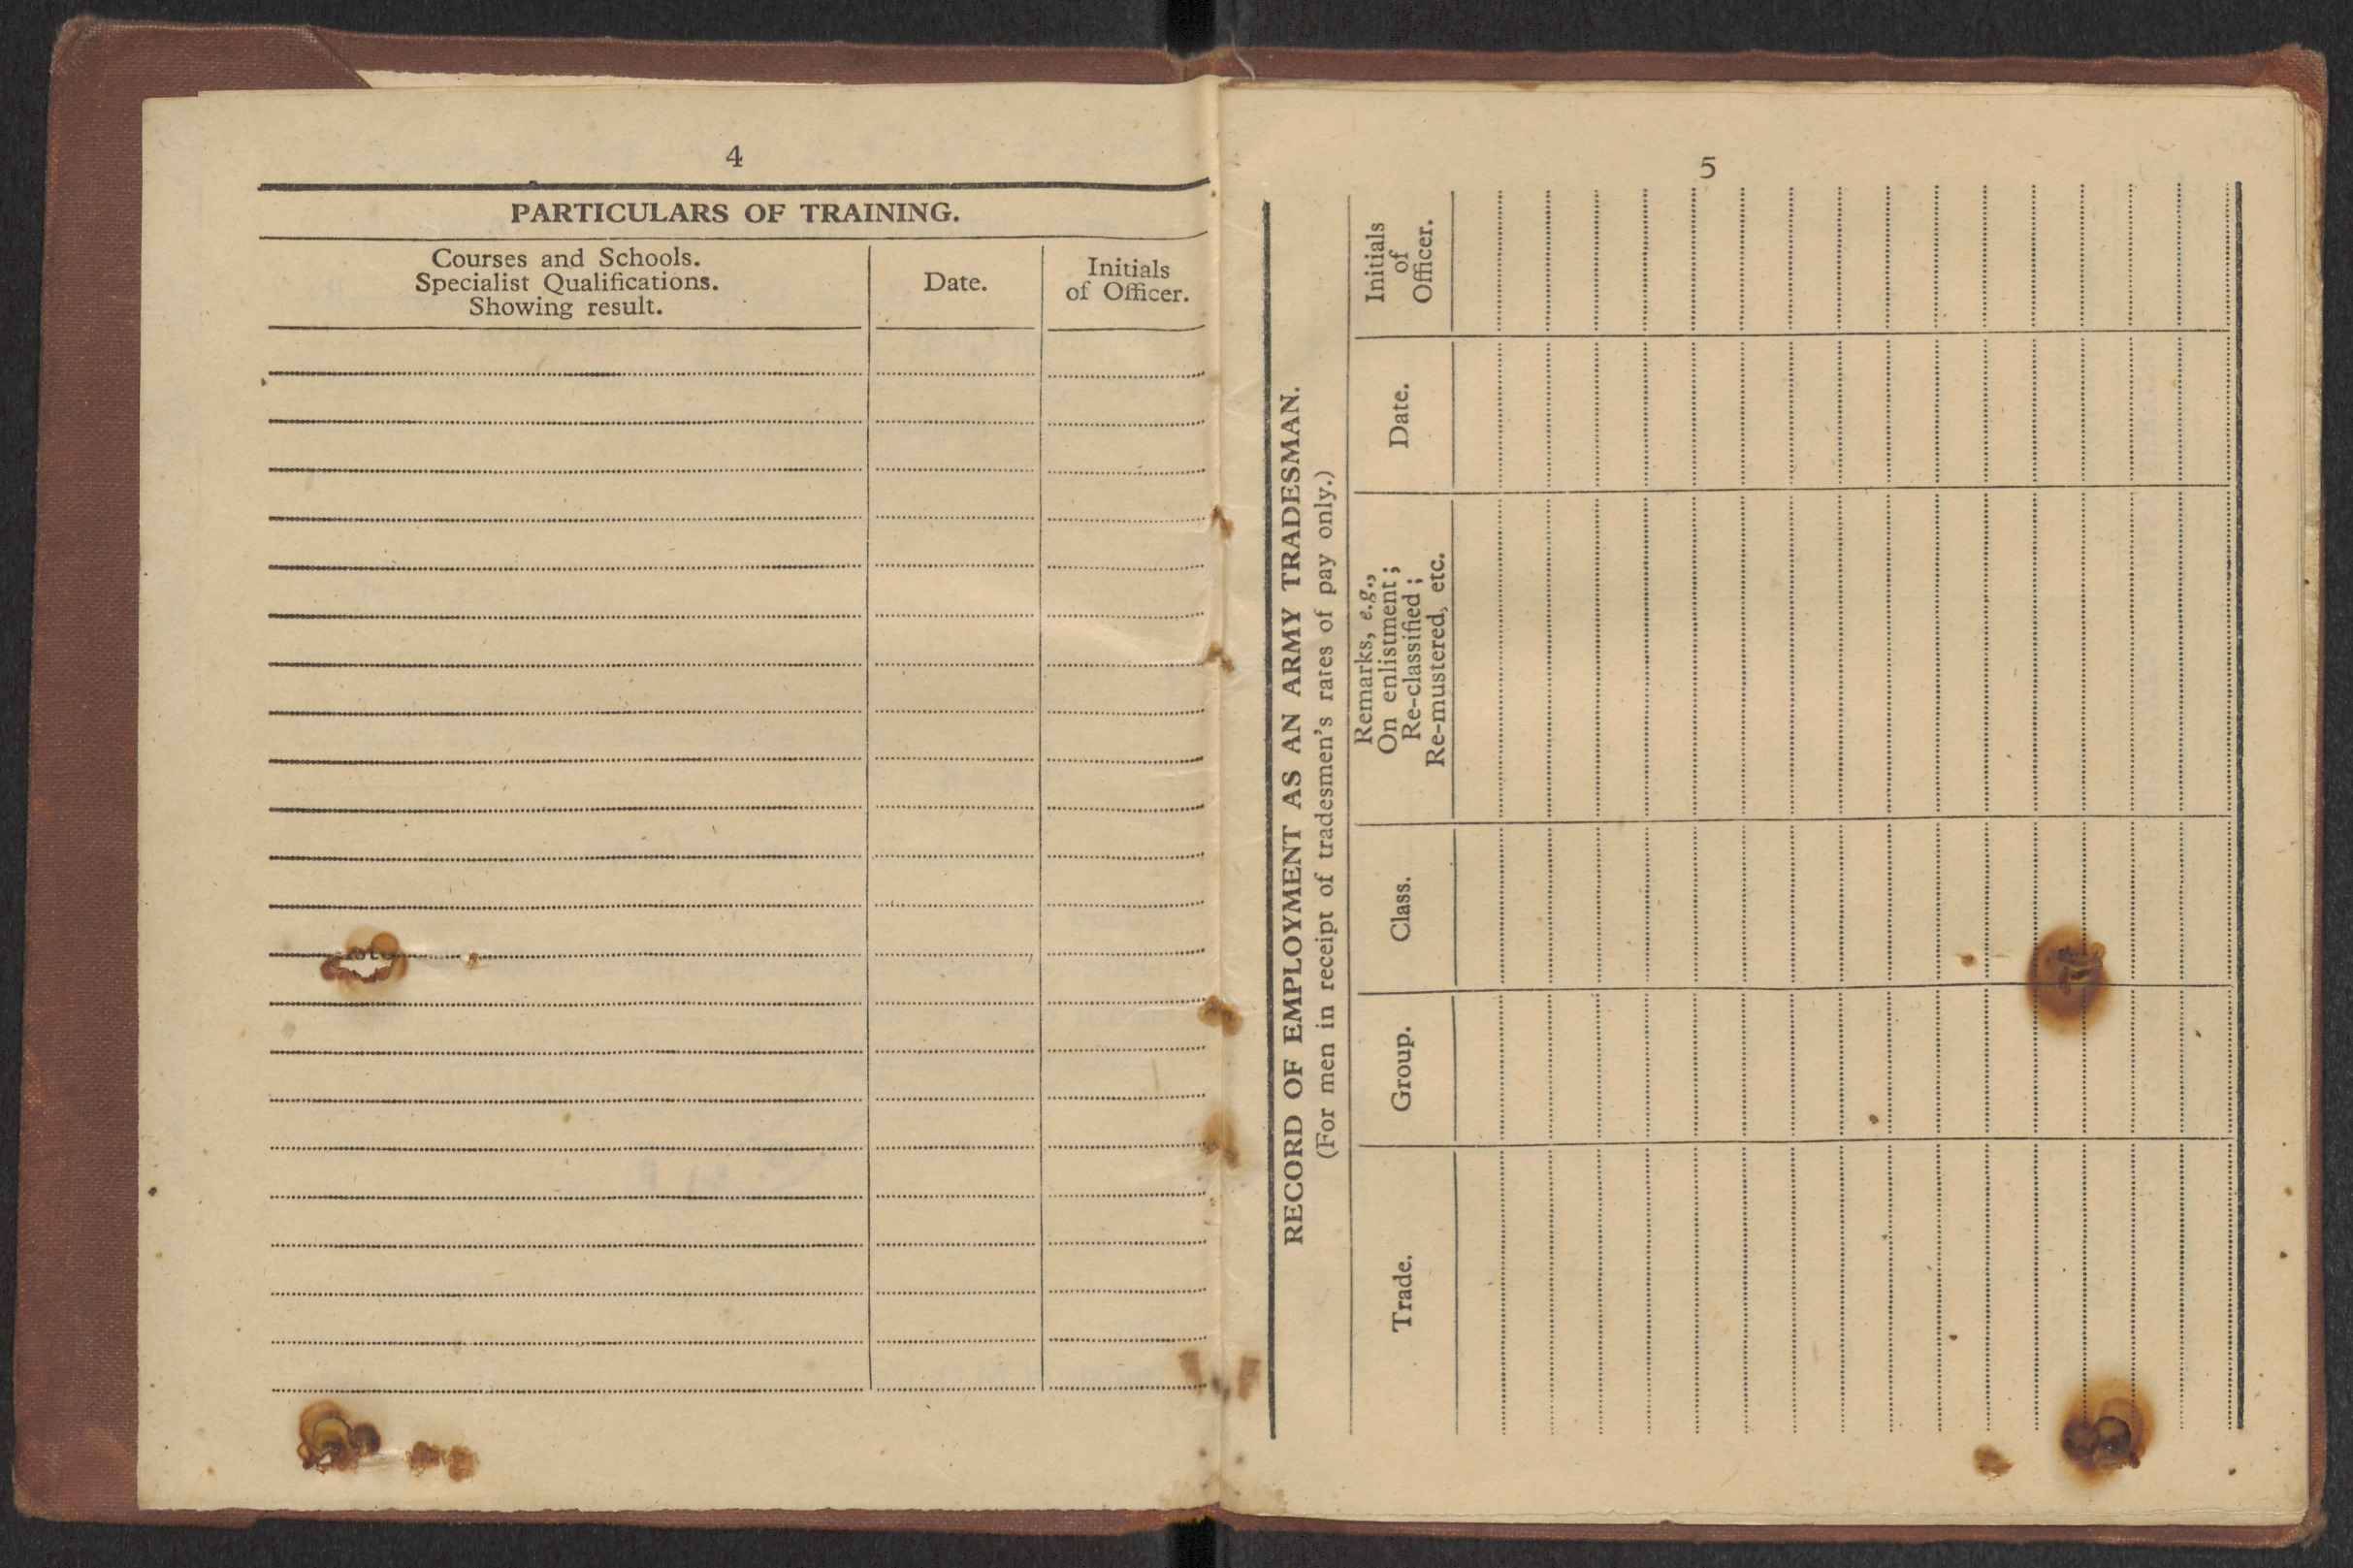 4
PARTICULARS OF TRAINING.
Courses and Schools.
Specialist Qualifications.
Showing result.
Date.
Initials
of Officer.
5
RECORD OF EMPLOYMENT AS AN ARMY TRADESMAN.
(For men in receipt of tradesmen's rates of pay only.)
Trade.
Group.
Class.
Remarks, e.g.,
On enlistment;
Re-classified;
Re-mustered, etc.
Date.
Initials
of
Officer.